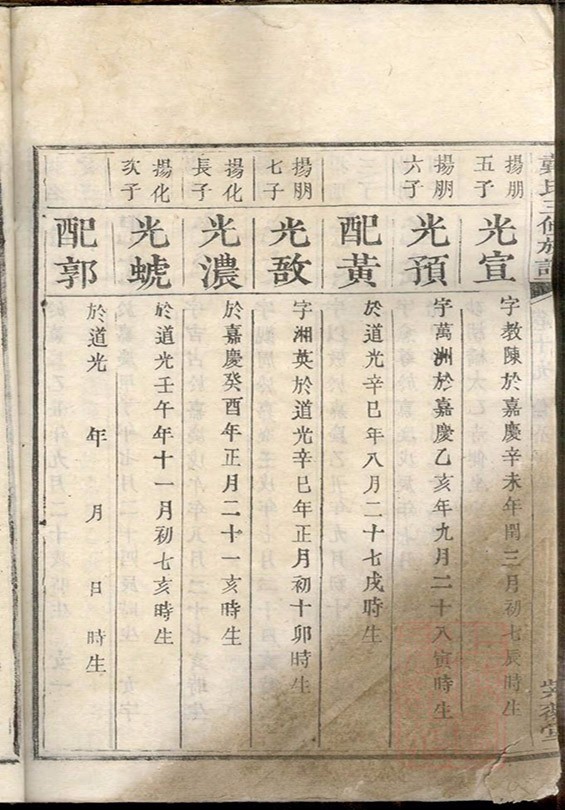 氏三修族譜
揚朋
五子
光宣
字教陳於嘉慶辛未年閏三月初七辰時生
揚朋
六子
光預
字萬洲於嘉慶乙亥年九月二十八寅時生
配黃
於道光辛巳年八月二十七戌時生
揚朋
七子
光敔
字湘英於道光辛巳年正月初十卯時生
揚化
長子
光濃
於嘉慶癸酉年正月二十一亥時生
揚化
次子
光螔
於道光壬午年十一月初七亥時生
配郭
於道光 年 月 日 時生